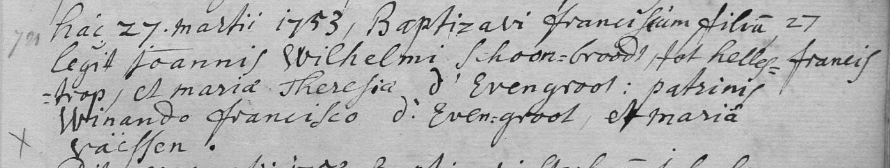 hac 27. martii 1753, Baptizavi franciscum filiū 27
legit Joannis Wilhelmi Schoon=broodt, tot helles= francis
=trop, et mariæ Theresiæ d'Evengroot: patrinis
Winando francisco d'Even=groot, et mariâ
X vaëssen.